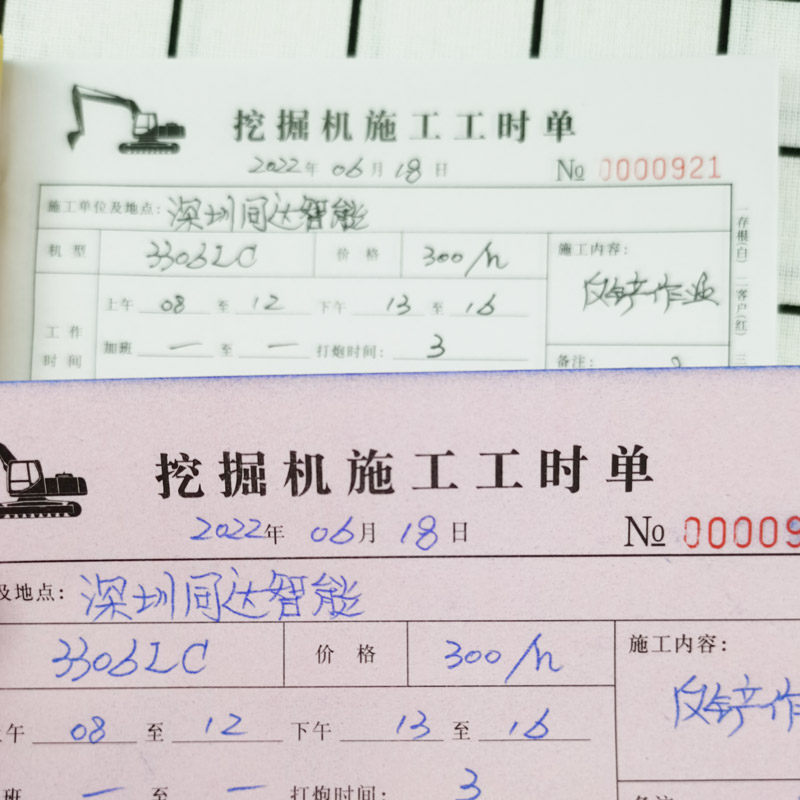 挖掘机施工工时单
2022年 06月 18日 № 0000921
施工单位及地点: 深圳同达智能
机型 3306LC 价格 300/h 施工内容:
反铲作业
上午 08 至 12 下午 13 至 16
工作时间
加班 — 至 — 打炮时间: 3
备注:
一存根(白) 二客户(红) 三
挖掘机施工工时单
2022年 06月 18日 № 00009
及地点: 深圳同达智能
3306LC 价格 300/h 施工内容:
反铲作
上午 08 至 12 下午 13 至 16
班 — 至 — 打炮时间: 3
备注